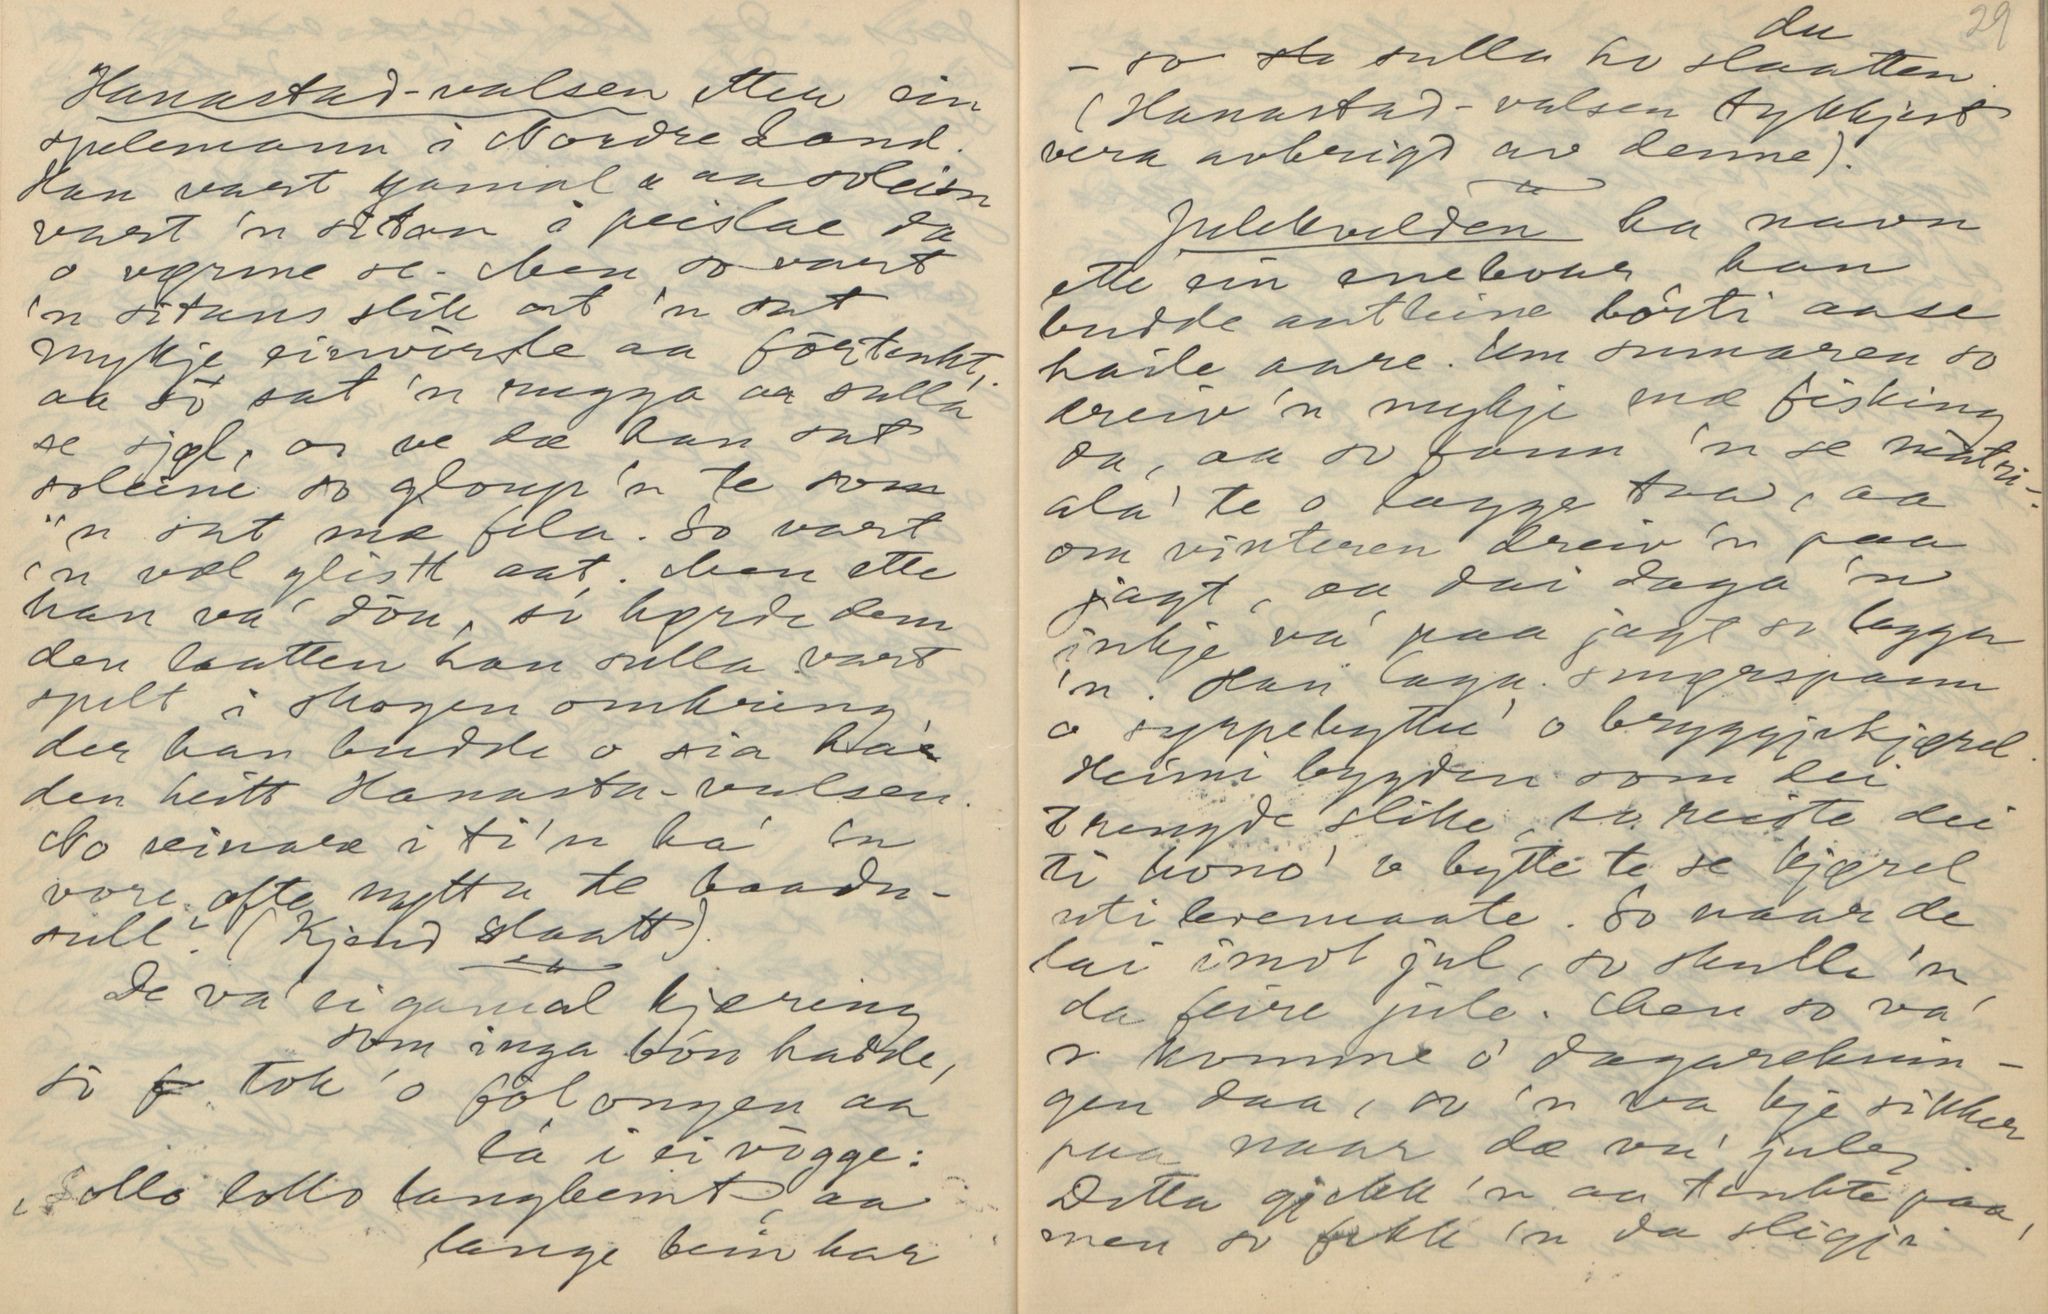 Hanastad-valsen etter ein
spelemann i Nordre Land.
Han vart gamal & aa soleisn
vart 'n sitan i peislae da
o værme se. Men so vart
'n sitans slik at 'n sat
mykje einvörde aa förtenkt,
aa sö sat 'n rugga aa sulla
se sjøl, os ve dæ han sat
soleine so gloup 'n te som
"n sat mæ fela. So vart
'n væl glistt aat. Men ette
han va' döu, so hørde dem
den laatten han sulla vart
spelt i skogen omkring
der han budde o sia ha'
den heitt Hanasta-valsen.
No seinare i ti'n ha' 'n
vore ofte nytta te baadn-
sull". (Kjend slaatt).
De va' ei gamal kjæring
som inga bön hadde,
sö tok 'o föløngen aa
la i ei vögge:
"Sollo lollo langbeint, aa
lange bein har
29
du
- so sulla ho slaatten.
(Hanastad-valsen tykkjest
vera avbrigd av denne).
Julekvelden ha navn
ette ein enebour han
budde autleine börti aase
haile aare. Um sumaren so
dreiv 'n mykje mæ fisking
da, aa so fann 'n se matri-
ala' te o lagge tva, aa
om vinteren dreiv 'n paa
jagt, aa dai daga 'n
inkje va' paa jagt so lagga
'n. Han laga smørspann
o syrpebytte' o bryggjekjørel.
Heimi bygden som dei
trengde slike, so reiste dei
ti hono' o bytte te se kjørel
uti levemaate. So naar de
lai imot jul, so skulle 'n
da feire jule. Men so va'
'n komme o' dagareknin-
gen daa, so 'n va kje sikker
paa naar dæ va' jule,
Detta gjekk 'n aa tenkte paa,
men so fekk 'n da sligji